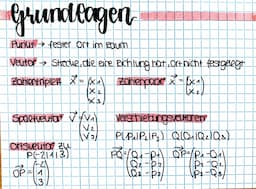 Grundlagen
Punkt → fester Ort im Raum
Vektor → Strecke, die eine Richtung hat, Ort nicht festgelegt
Zahlentripel x⃗ = (x₁ x₂ x₃) Zahlenpaar x⃗ = (x₁ x₂)
Spaltvektor v⃗ = (v₁ v₂ v₃) Verschiebungsvektoren
P(P₁|P₂|P₃) Q(Q₁|Q₂|Q₃)
Ortsvektor zu
P(-2|1|3)
OP⃗ = (-2 1 3)
PQ⃗ = (Q₁-P₁ Q₂-P₂ Q₃-P₃) QP⃗ = (P₁-Q₁ P₂-Q₂ P₃-Q₃)